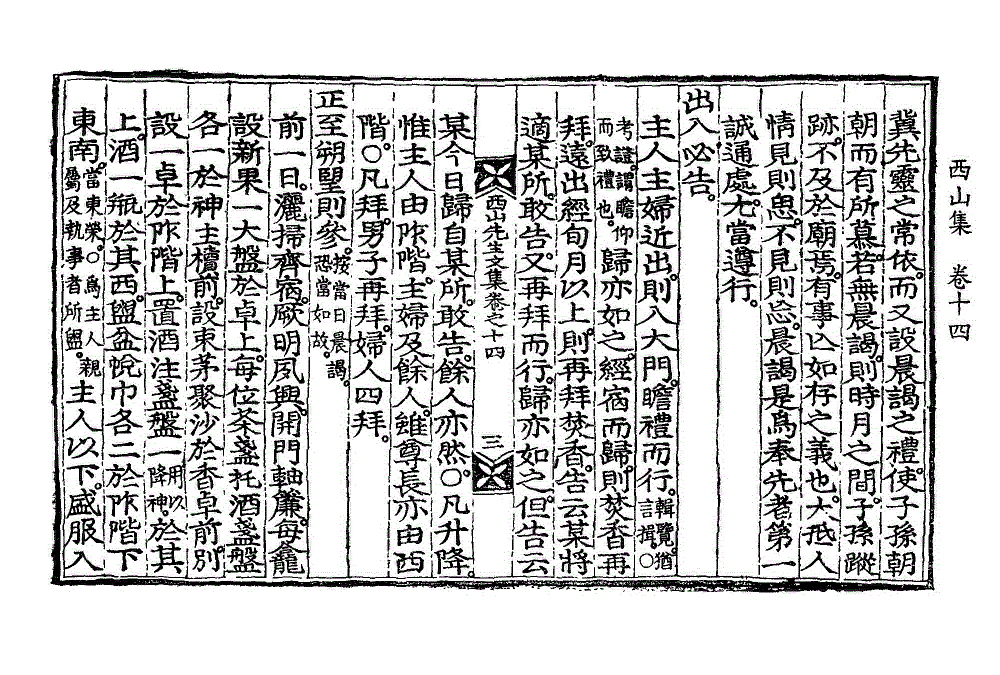 西山集 卷十四
冀先靈之常依而又設晨謁之禮使子孫朝
朝而有所慕若無晨謁則時月之間子孫蹤
跡不及於廟焉有事亾如存之義也大抵人
情見則思不見則忘晨謁是爲奉先者第一
誠通處尤當遵行
出入必告
主人主婦近出則入大門瞻禮而行輯覽猶言揖○
考證謂瞻仰而致禮也歸亦如之經宿而歸則焚香再
拜遠出經旬月以上則再拜焚香告云某將
適某所敢告又再拜而行歸亦如之但告云
西山先生文集卷之十四 三
某今日歸自某所敢告餘人亦然○凡升降
惟主人由阼階主婦及餘人雖尊長亦由西
階○凡拜男子再拜婦人四拜
正至朔望則參按當日晨謁恐當如故
前一日灑掃齊宿厥明夙興開門軸簾每龕
設新果一大盤於卓上每位茶盞托酒盞盤
各一於神主櫝前設束茅聚沙於香卓前別
設一卓於阼階上置酒注盞盤一用以降神於其
上酒一甁於其西盥盆帨巾各二於阼階下
東南當東榮○爲主人親屬及執事者所盥主人以下盛服入